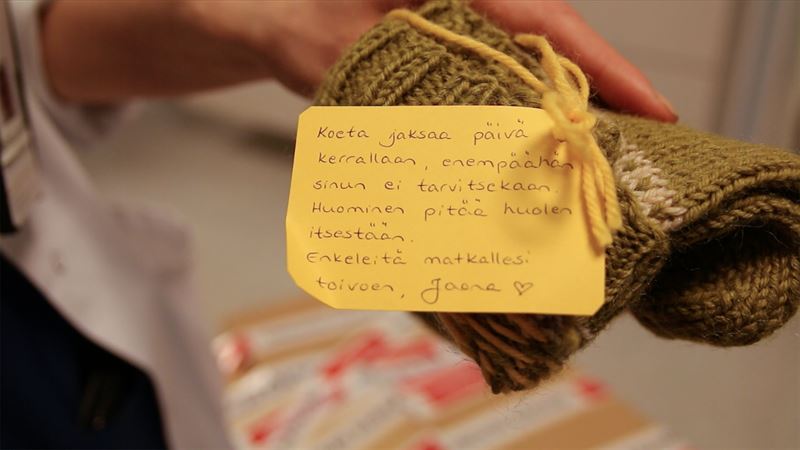 Koeta jaksaa päivä
kerrallaan, enempäähän
sinun ei tarvitsekaan.
Huominen pitää huolen
itsestään.
Enkeleitä matkallesi
toivoen, Jaana ♡